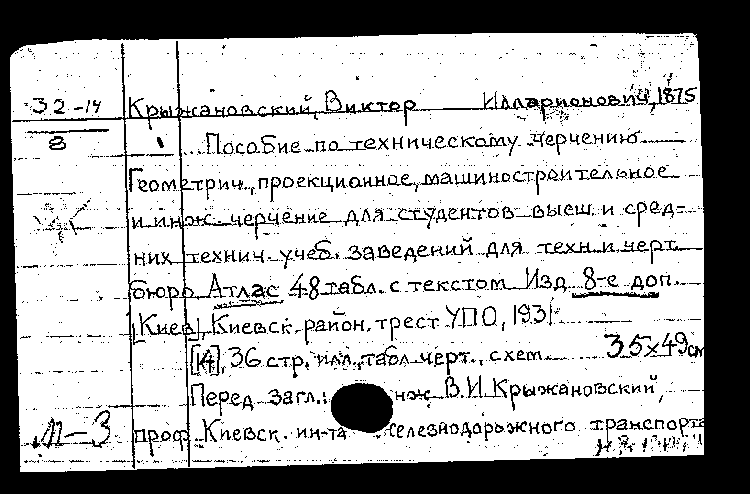 32-14 Крыжановский, Виктор Илларионович, 1875
8 Пособие по техническому черчению
Геометрич., проекционное, машиностроительное
и инж. черчение для студентов высш. и сред-
них технич. учеб. заведений для техн. и черт.
бюро. Атлас 48 табл. с текстом Изд. 8-е доп.
[Киев], Киевск. район. трест УПО, 1931
[14], 36 стр. илл., табл. черт., схем. 35х49 см
Перед загл.: инж. В.И. Крыжановский,
М-3 проф. Киевск. ин-та железнодорожного транспорта